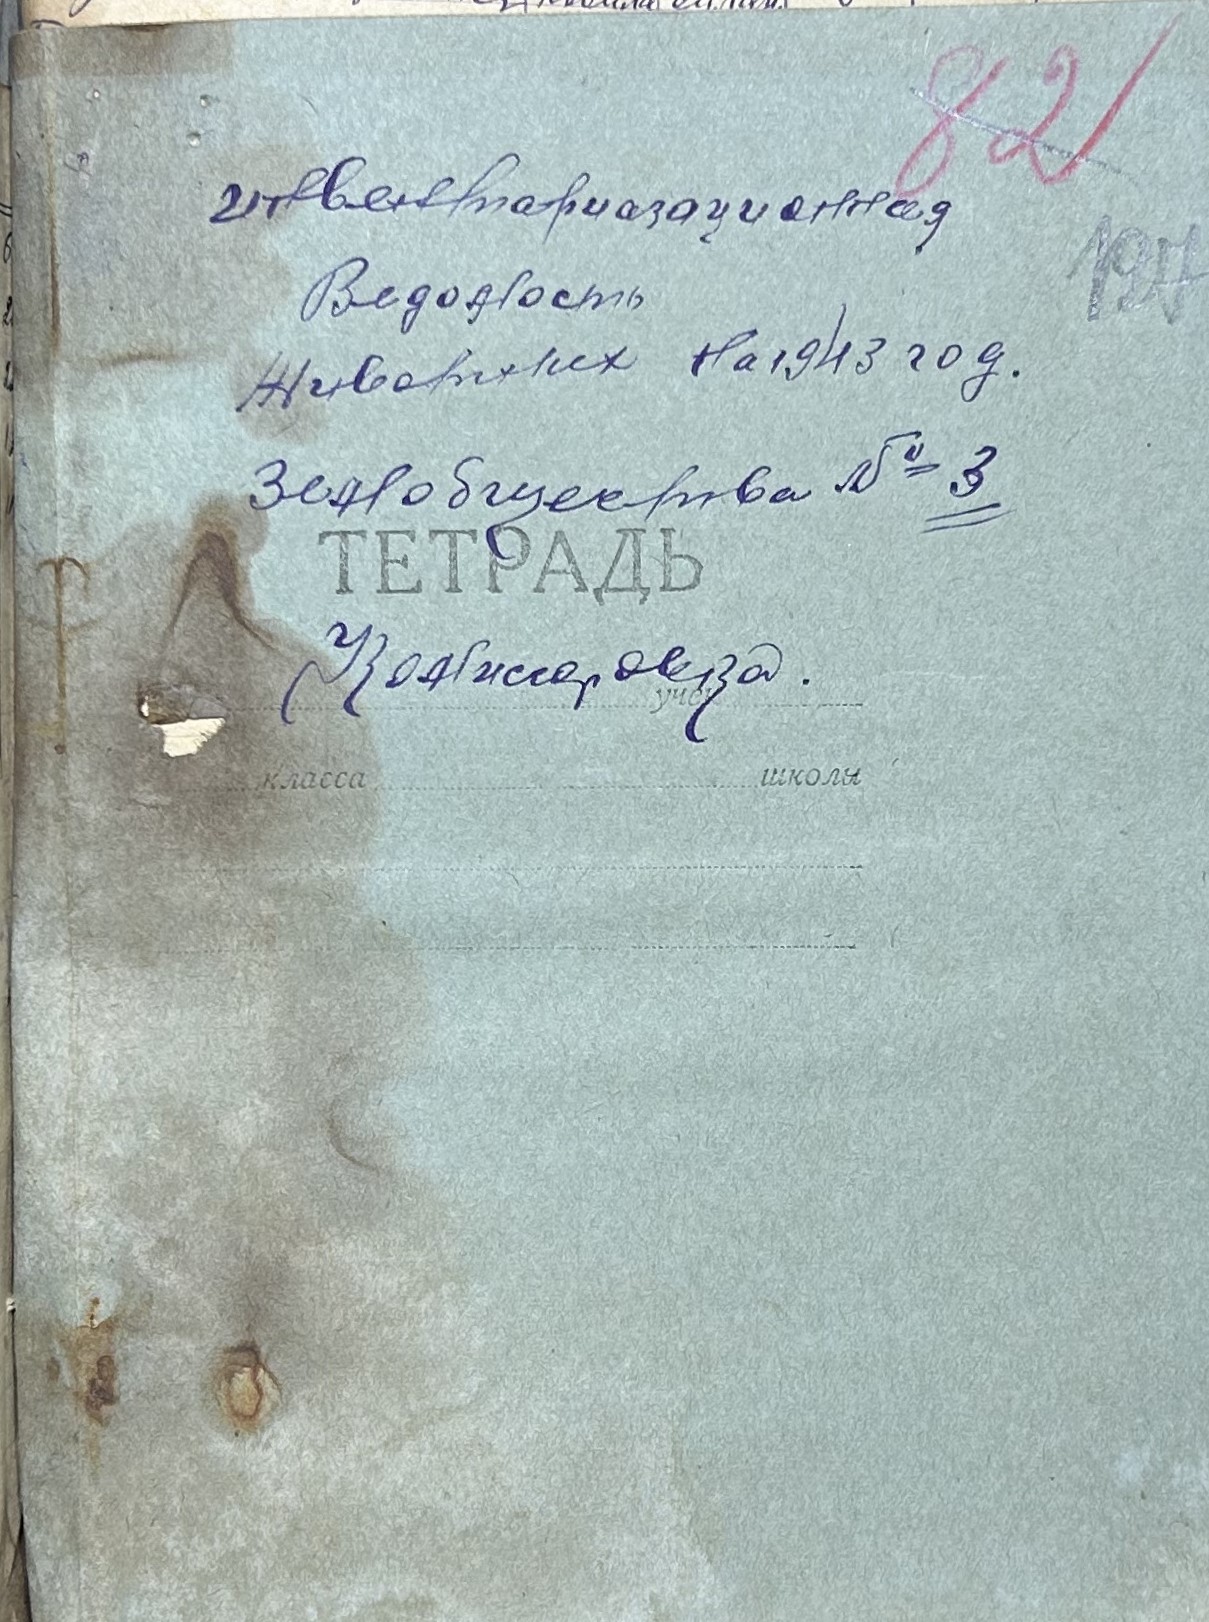 82
инвентариазационная
197
Ведомость
Живортних на 1943 год.
Земобщества № 3
ТЕТРАДЬ
Комисаровка.
уче
класса школы